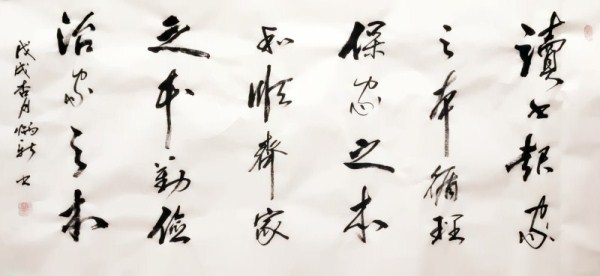 讀书起家
之本循理
保家之本
和順齊家
之本勤儉
治家之本
戊戌杏月炳新书